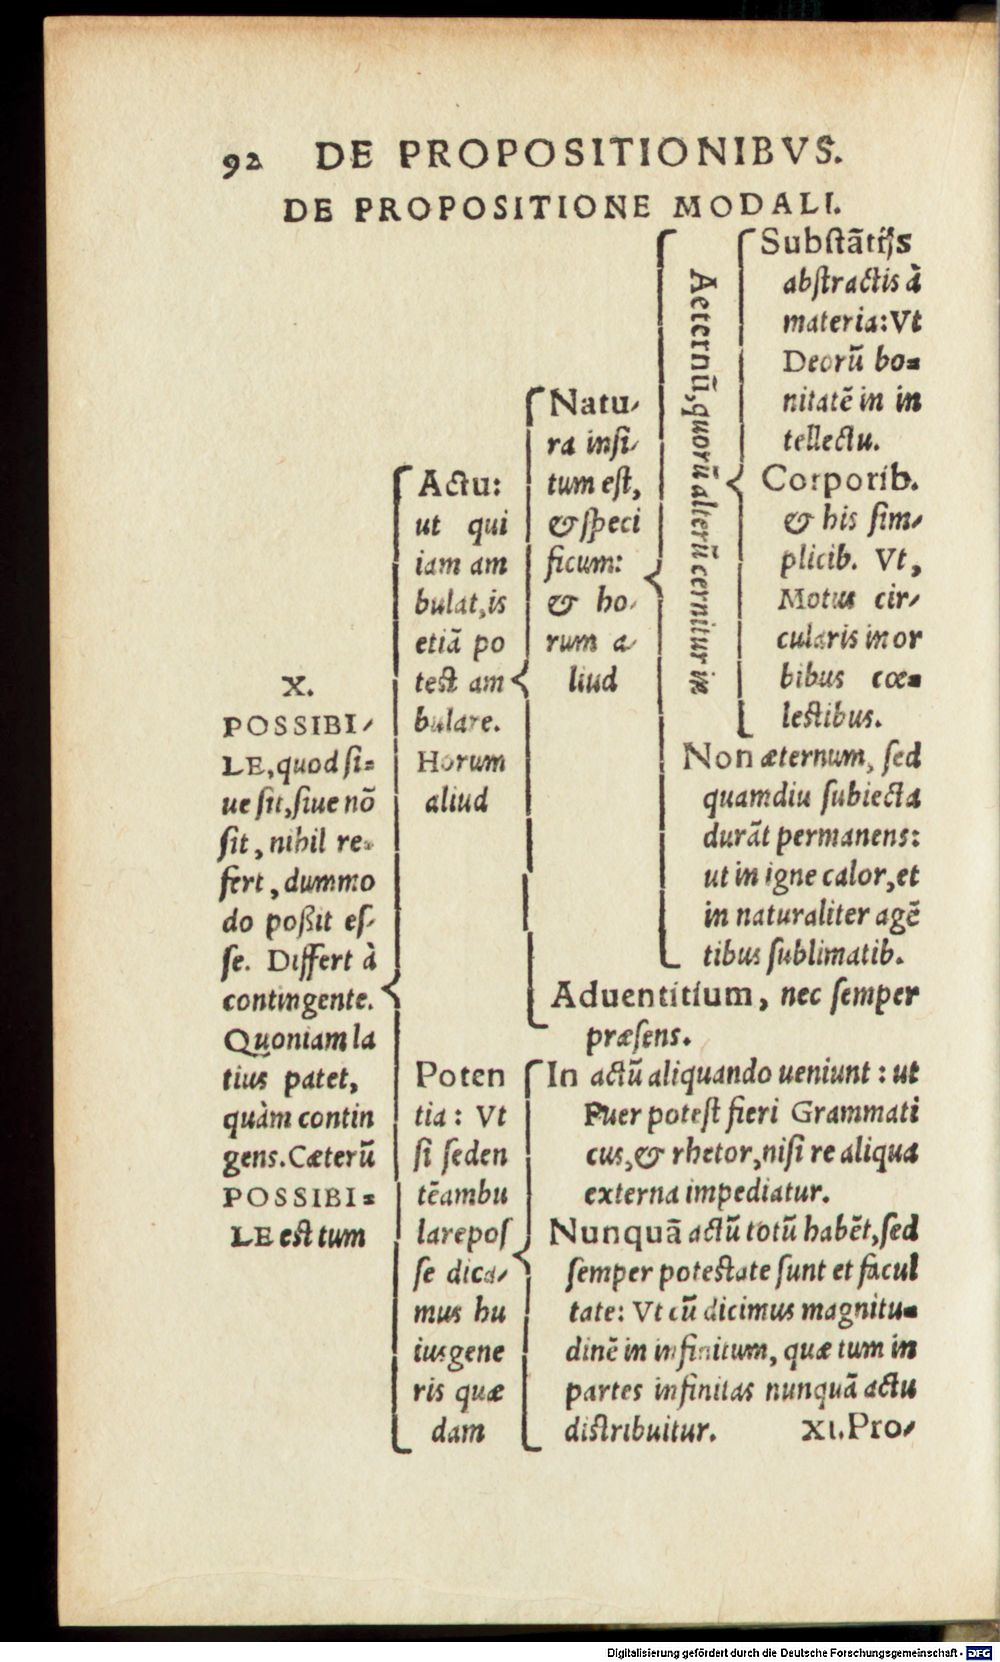 92 DE PROPOSITIONIBVS.
DE PROPOSITIONE MODALI.
X.
POSSIBI-
LE, quod si=
ue sit, siue nõ
sit, nihil re-
fert, dummo
do poßit es-
se. Differt à
contingente.
Quoniam la
tius patet,
quàm contin
gens. Cæterũ
POSSIBI=
LE est tum
Actu:
ut qui
iam am
bulat, is
etiã po
test am
bulare.
Horum
aliud
Natu-
ra insi-
tum est,
& speci
ficum:
& ho-
rum a-
liud
Aeternũ, quorũ alterũ cernitur in
Substãtijs
abstractis à
materia: Vt
Deorũ bo=
nitatẽ in in
tellectu.
Corporib.
& his sim-
plicib. Vt,
Motus cir-
cularis in or
bibus cœ=
lestibus.
Non æternum, sed
quamdiu subiecta
durãt permanens:
ut in igne calor, et
in naturaliter agẽ
tibus sublimatib.
Aduentitium, nec semper
præsens.
Poten
tia: Vt
si seden
tẽ ambu
lare pos
se dica-
mus hu
ius gene
ris quæ
dam
In actũ aliquando ueniunt: ut
Puer potest fieri Grammati
cus, & rhetor, nisi re aliqua
externa impediatur.
Nunquã actũ totũ habẽt, sed
semper potestate sunt et facul
tate: Vt cũ dicimus magnitu=
dinẽ in infinitum, quæ tum in
partes infinitas nunquã actu
distribuitur. XI. Pro-
Digitalisierung gefördert durch die Deutsche Forschungsgemeinschaft - DFG